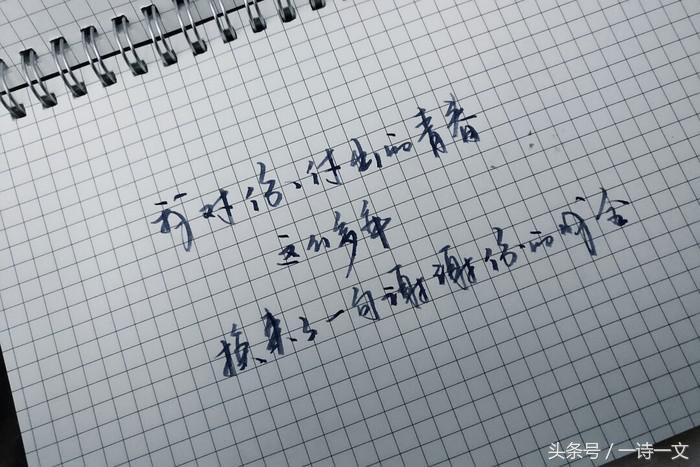 我对你付出的青春
这么多年
换来了一句谢谢你的成全
头条号／一诗一文